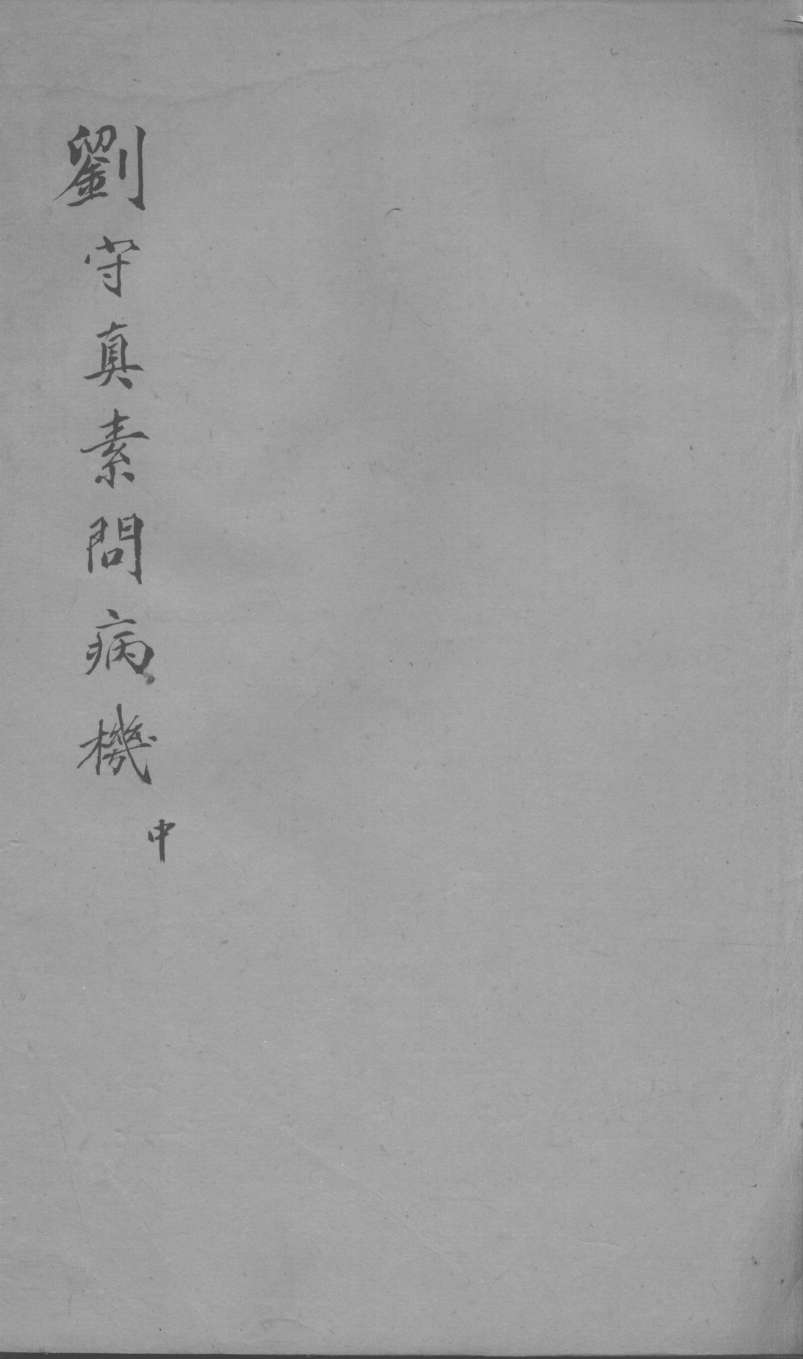 劉守真素問病機
中